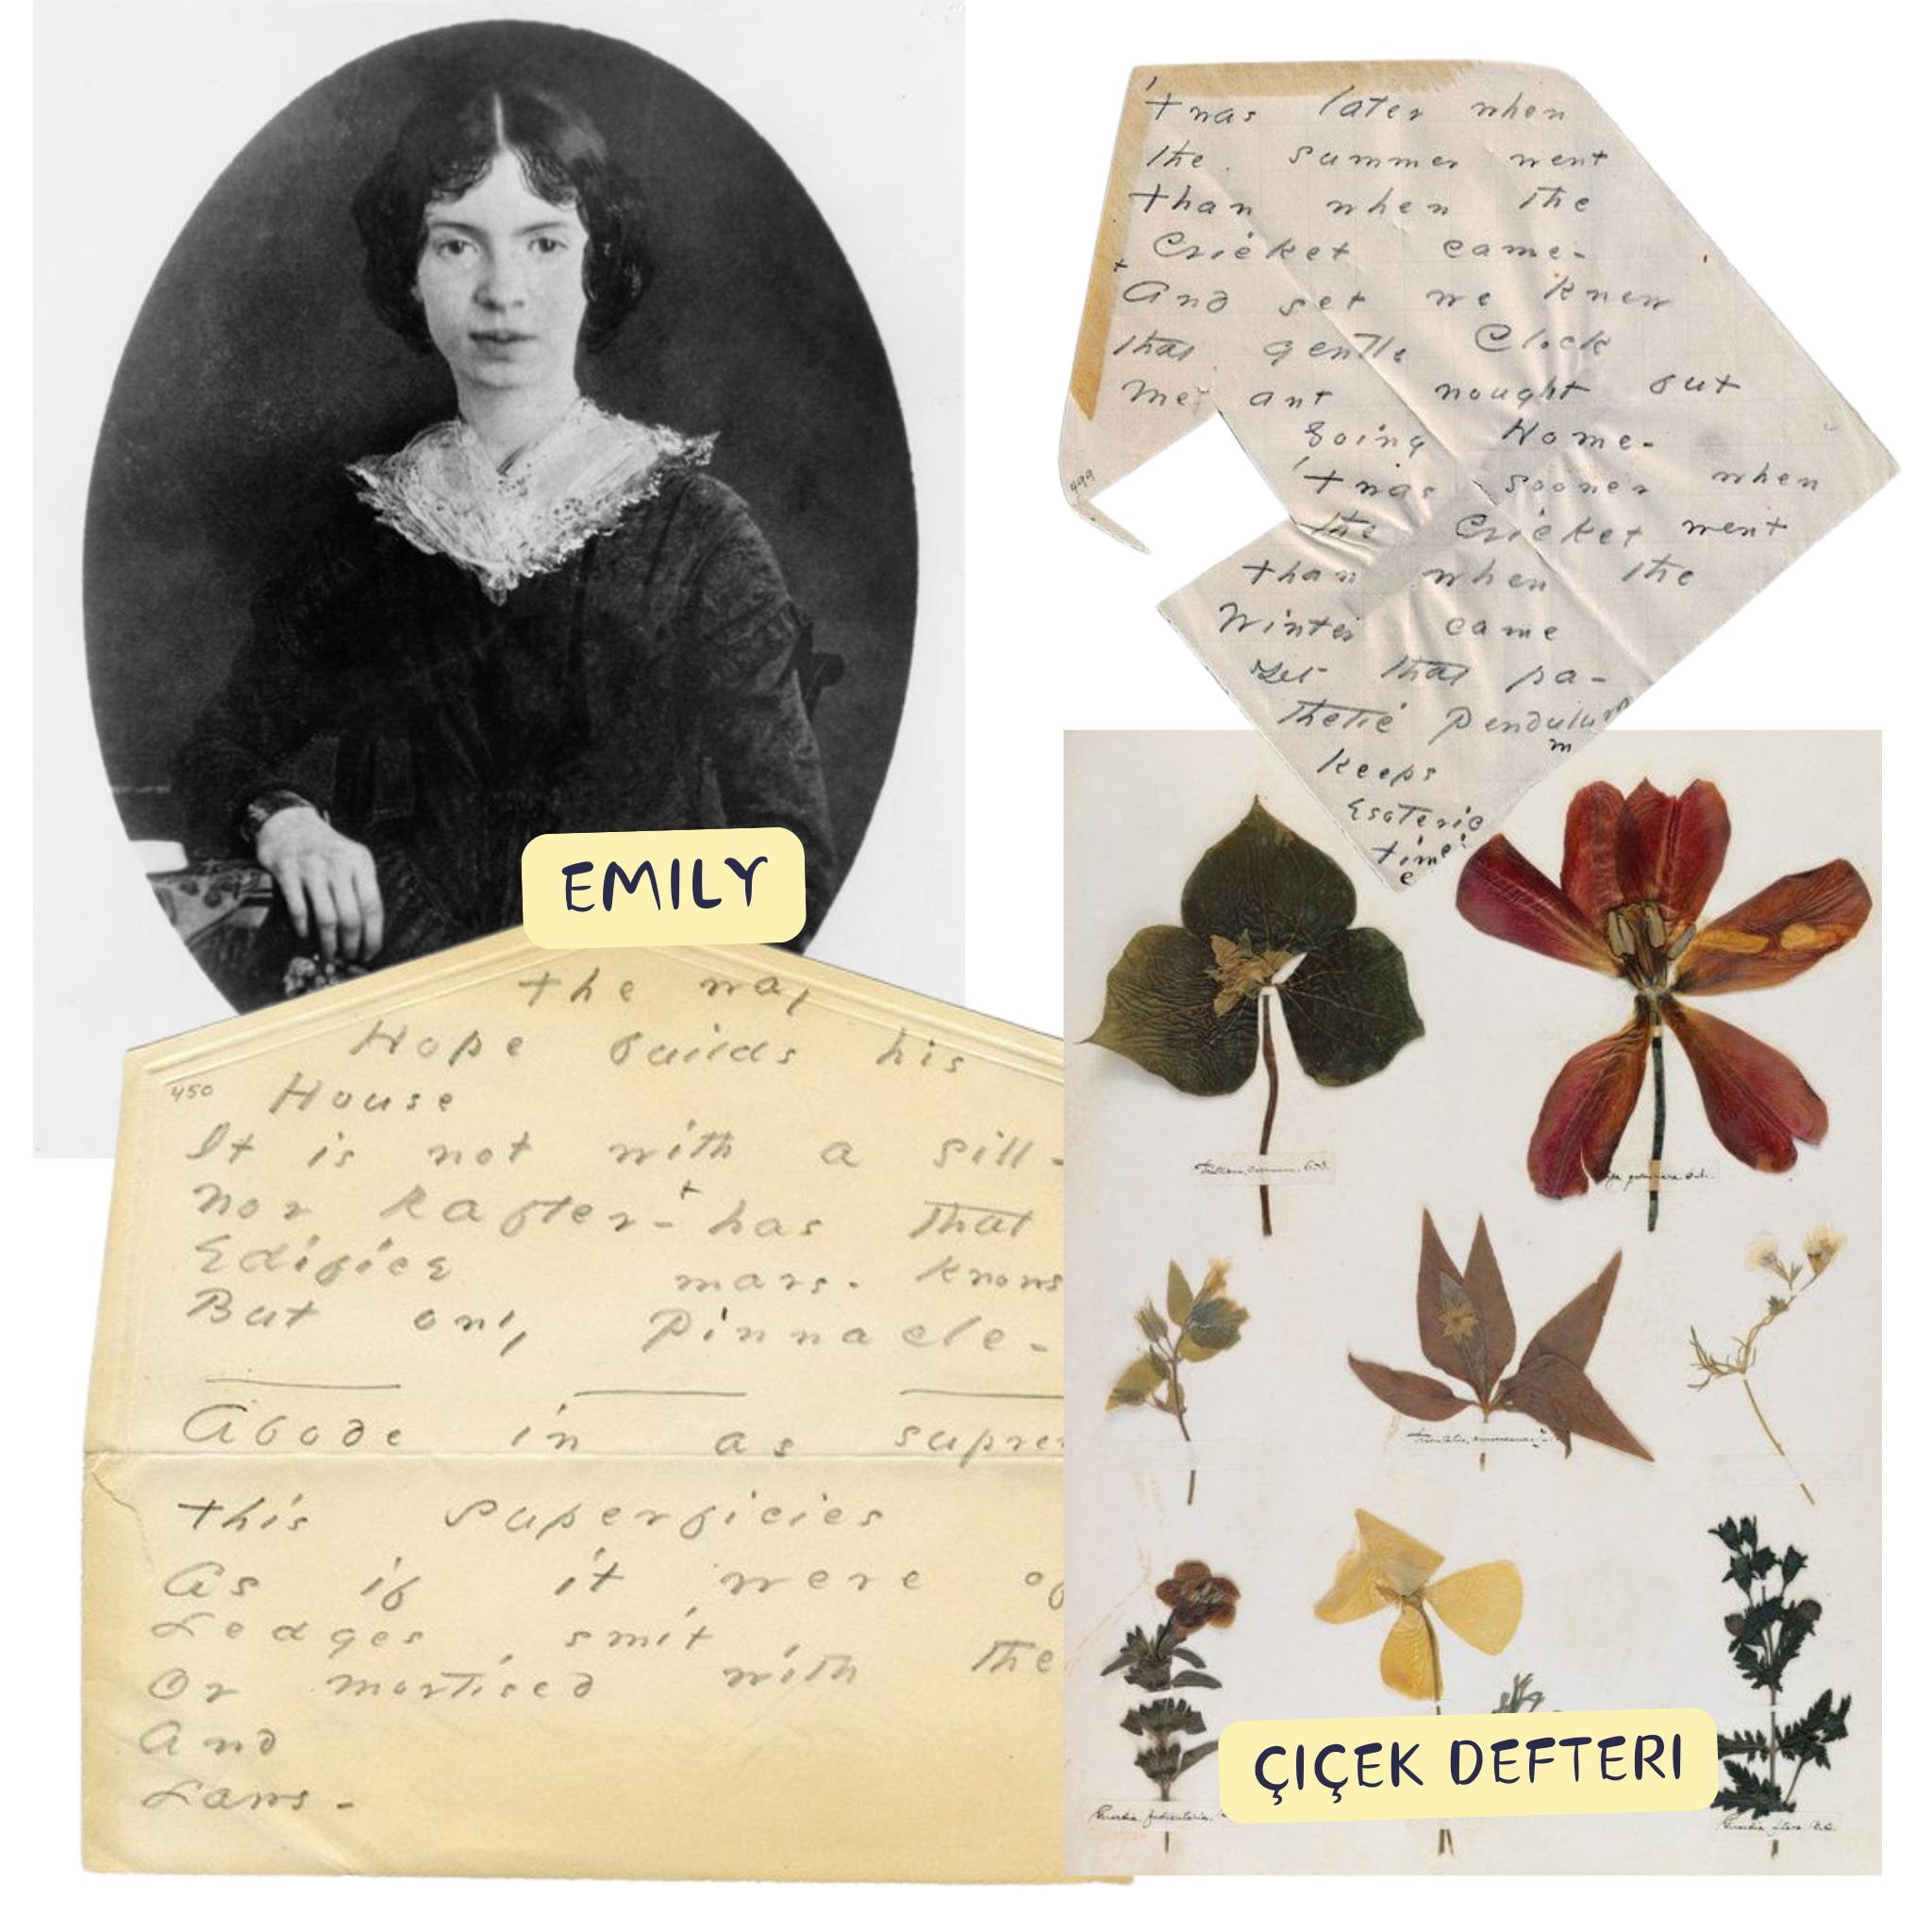 EMILY
'twas later when
the summer went
than when the
Cricket came-
And yet we knew
that gentle Clock
meant nought but
Going Home-
'twas sooner when
the Cricket went
than when the
Winter came
Yet that pa-
thetic Pendulum
m
keeps
Esoteric
time
499
the way
Hope builds his
House
450
It is not with a sill-
Nor Rafter- has that
Edifice mars. Knows
But only Pinnacle-
Abode in as supre
this superficies
As if it were of
Ledges smit
Or mortised with the
And
Laws-
ÇIÇEK DEFTERI